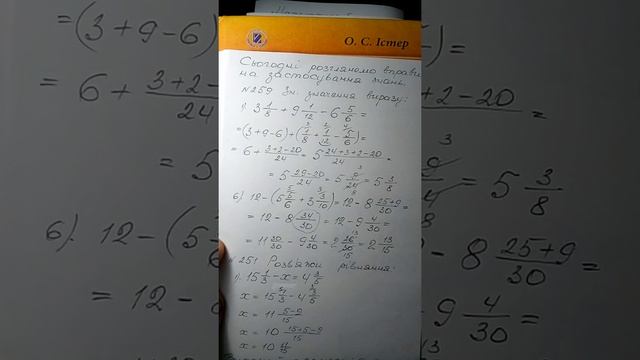 О. С. Істер
Сьогодні розглянемо вправи
на застосування знань.
№259 Зн. значення виразу:
1) 3 1/8 + 9 1/12 - 6 5/6 =
= (3+9-6) + (1/8 + 1/12 - 5/6) =
= 6 + (3+2-20)/24 = 5 (24+3+2-20)/24 =
= 5 (29-20)/24 = 5 9/24 = 5 3/8
6) 12 - (5 5/6 + 3 3/10) = 12 - 8 (25+9)/30 =
= 12 - 8 34/30 = 12 - 9 4/30 =
= 11 30/30 - 9 4/30 = 2 26/30 = 2 13/15
№251 Розв'яжи рівняння:
1) 15 1/3 - x = 4 3/5
x = 15 1/3 - 4 3/5
x = 11 (5-9)/15
x = 10 (15+5-9)/15
x = 10 11/15
= (3+9-6)
6 + (3+2-20)/24
+2-20
= 5 3/8
6). 12 - (5
8 (25+9)/30
= 12 -
9 4/30 =